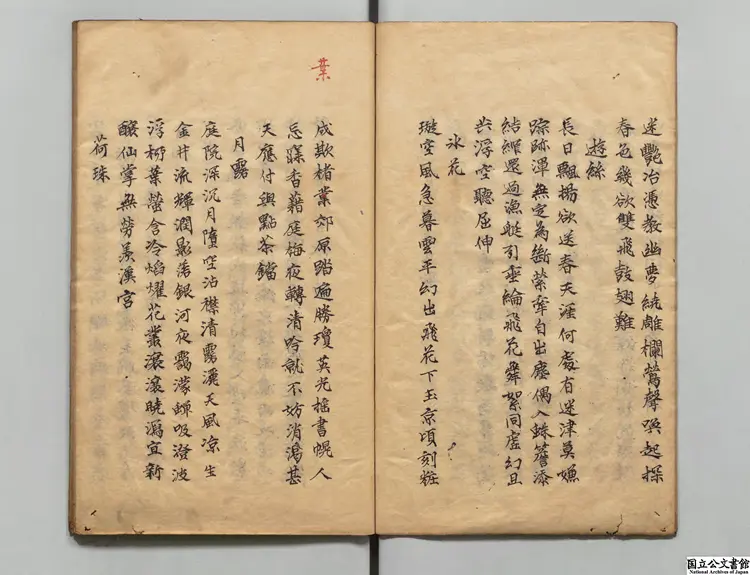 迷艷冶憑教幽夢繞雕欄鶯聲喚起探
春色幾欲雙飛鼓翅難
遊絲
長日飄揚欲送春天涯何處有迷津莫嫌
踪跡渾無定為斷縈牽自出塵偶入蛛簷添
結網還過漁艇引垂綸飛花舞絮同虛幻且
共浮空聽屈伸
冰花
璇空風急暮雲平幻出飛花下玉京頃刻粧
葉
成欺楮葉郊原踏遍勝瓊英光搖書幌人
忘寐香藉庭梅夜轉清吟就不妨消渴甚
天應付與點茶鐺
月露
庭院深沉月墮空沾襟清露灑天風凉生
金井流輝潤影落銀河夜靄濛蟬吸澄波
浮柳葉螢含冷焰耀花叢滾滾曉瀉宜新
釀仙掌無勞羨漢宮
荷珠
国立公文書館
National Archives of Japan